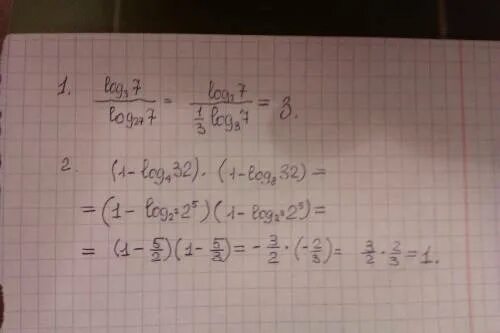 1. log₃7 / log₂₇7 = log₃7 / (1/3 log₃7) = 3.
2. (1-log₄32)·(1-log₈32)=
=(1-log₂²2⁵)(1-log₂³2⁵)=
=(1-5/2)(1-5/3)=-3/2·(-2/3)= 3/2·2/3=1.